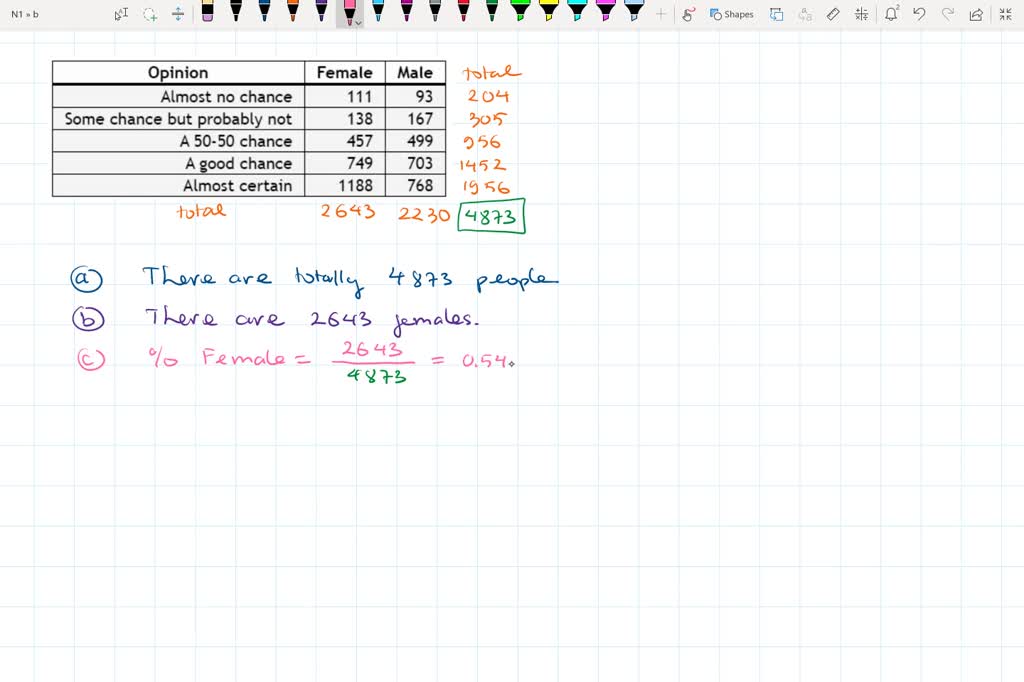 N1 » b Shapes
Opinion Female Male total
Almost no chance 111 93 204
Some chance but probably not 138 167 305
A 50-50 chance 457 499 956
A good chance 749 703 1452
Almost certain 1188 768 1956
total 2643 2230 4873
a There are totally 4873 people
b There are 2643 females.
c % Female = 2643 / 4873 = 0.54